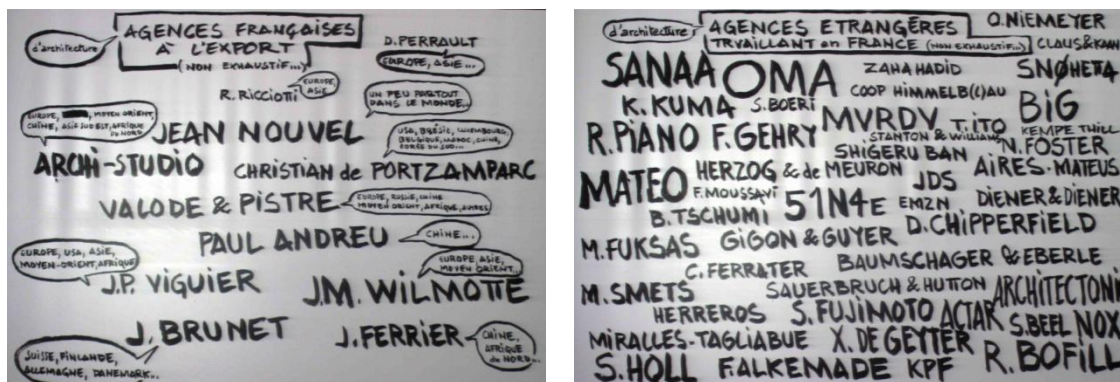 d'architecture
AGENCES FRANÇAISES
À L'EXPORT
(NON EXHAUSTIF...)
D. PERRAULT
EUROPE, ASIE...
R. RICCIOTTI
EUROPE
ASIE
UN PEU PARTOUT
DANS LE MONDE...
EUROPE, MOYEN ORIENT,
CHINE, ASIE SUD EST, AFRIQUE
DU NORD
JEAN NOUVEL
USA, BRÉSIL, LUXEMBOURG,
BELGIQUE, MAROC, CHINE,
CORÉE DU SUD...
ARCHI-STUDIO
CHRISTIAN de PORTZAMPARC
VALODE & PISTRE
EUROPE, RUSSIE, CHINE
MOYEN ORIENT, AFRIQUE, AUTRES
PAUL ANDREU
CHINE...
EUROPE, USA, ASIE,
MOYEN-ORIENT, AFRIQUE
J.P. VIGUIER
EUROPE, ASIE,
MOYEN ORIENT...
J.M. WILMOTTE
J. BRUNET
J. FERRIER
CHINE,
AFRIQUE
du NORD...
SUISSE, FINLANDE,
ALLEMAGNE, DANEMARK...
d'architecture
AGENCES ETRANGÈRES
TRVAILLANT en FRANCE (NON EXHAUSTIF...)
O. NIEMEYER
CLAUS & KAAN
SANAA
OMA
ZAHA HADID
SNØHETTA
COOP HIMMELB(L)AU
K. KUMA
S. BOERI
BIG
MVRDV
T. ITO
KEMPE THILL
R. PIANO
F. GEHRY
STANTON & WILLIAMS
N. FOSTER
SHIGERU BAN
MATEO
HERZOG & de MEURON
AIRES-MATEUS
F. MOUSSAVI
JDS
51N4E
EMZN
DIENER & DIENER
B. TSCHUMI
D. CHIPPERFIELD
M. FUKSAS
GIGON & GUYER
C. FERRATER
BAUMSCHAGER & EBERLE
M. SMETS
SAUERBRUCH & HUTTON
ARCHITECTONI
HERREROS
S. FUJIMOTO
ACTAR
S. BEEL
NOX
MIRALLES-TAGLIABUE
X. DE GEYTER
S. HOLL
FALKEMADE
KPF
R. BOFILL